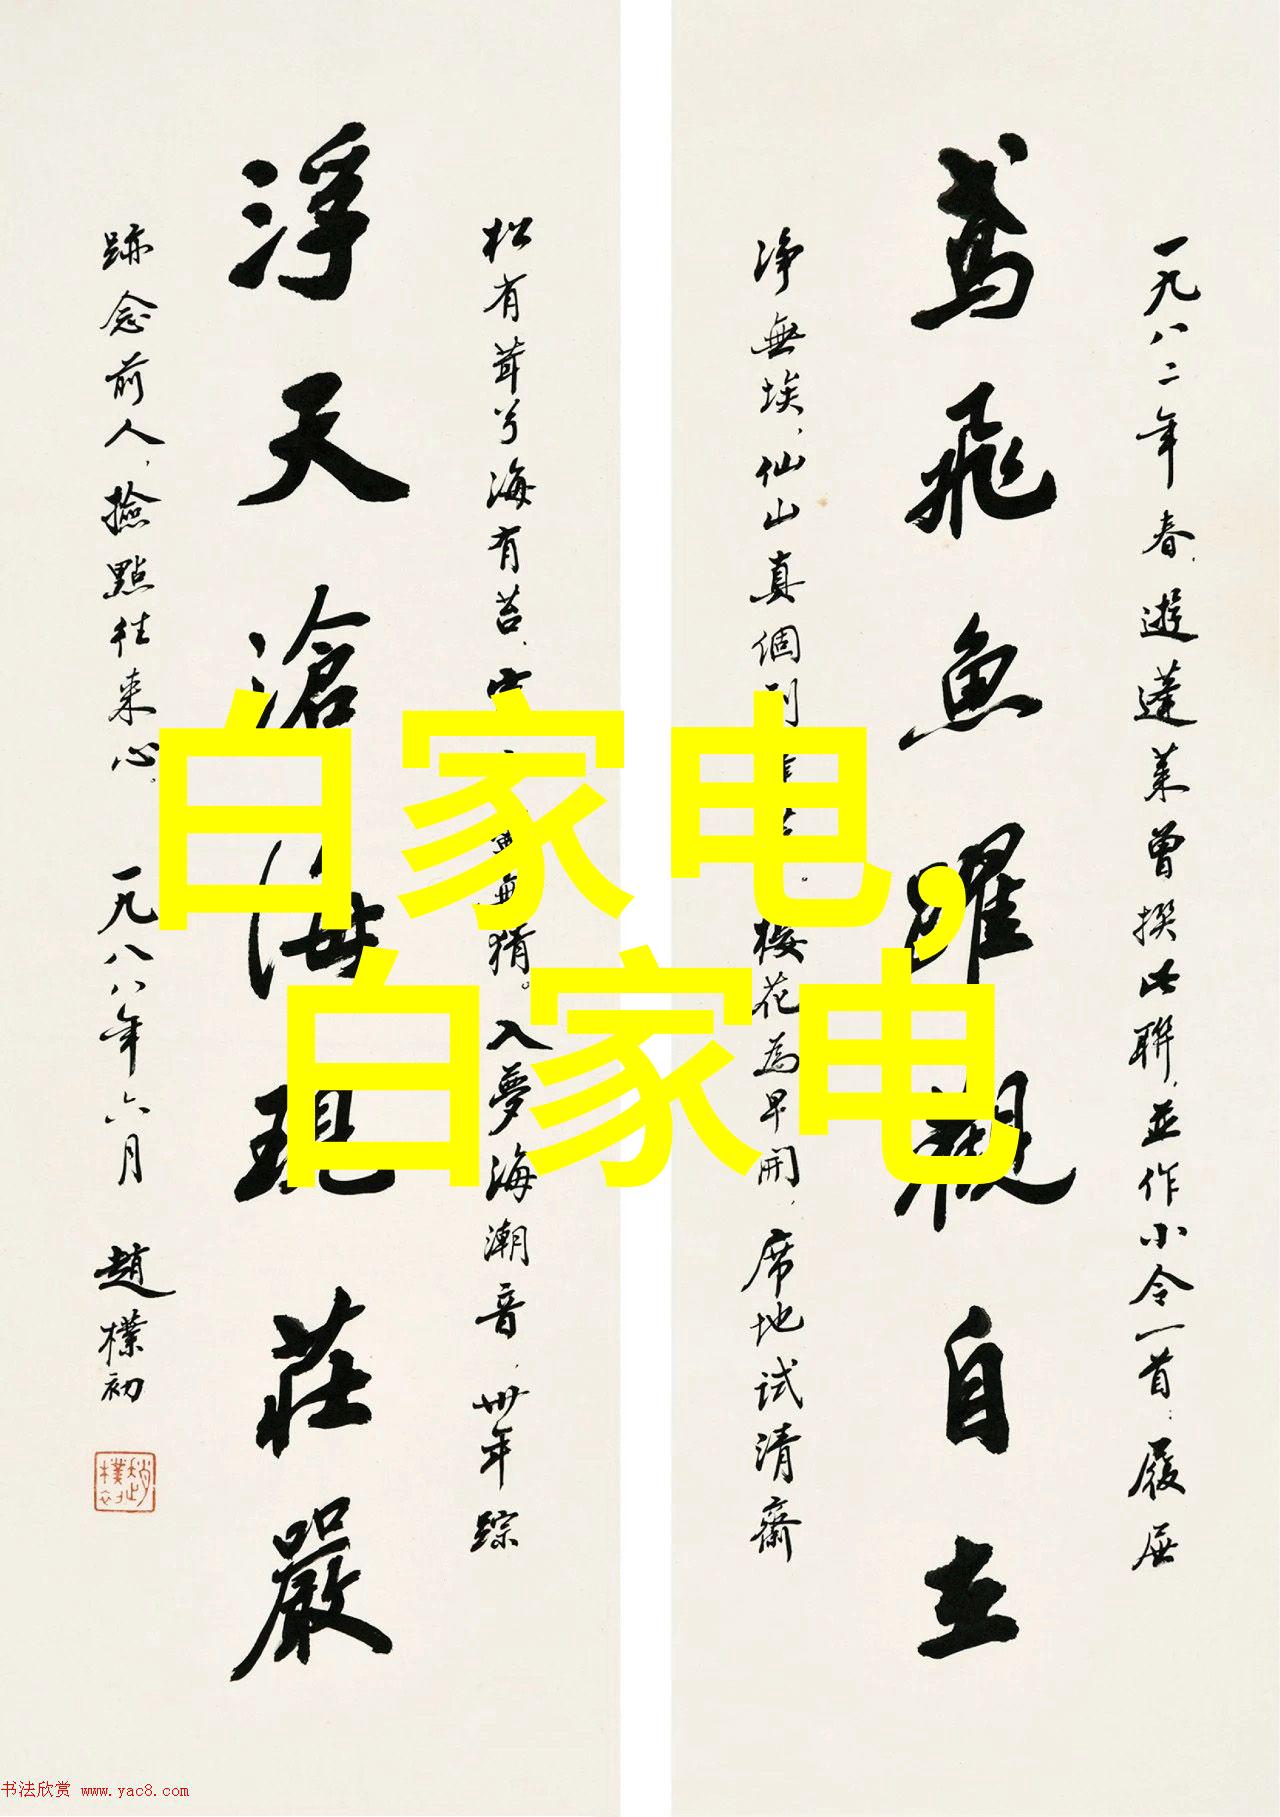 一九八二年春，遊蓬莱曾撰此聯，並作小令一首：履屐
鳶飛魚躍觀自在
净無埃，仙山真個到蓬莱。樱花為早開，席地試清齋
松有茸兮海有苔，無猜。入夢海潮音，卅年踪
浮天滄海現莊嚴
跡念前人，撿點往来心。一九八八年六月 趙樸初
趙樸初
白家电，
白家电
书法欣赏 www.yac8.com